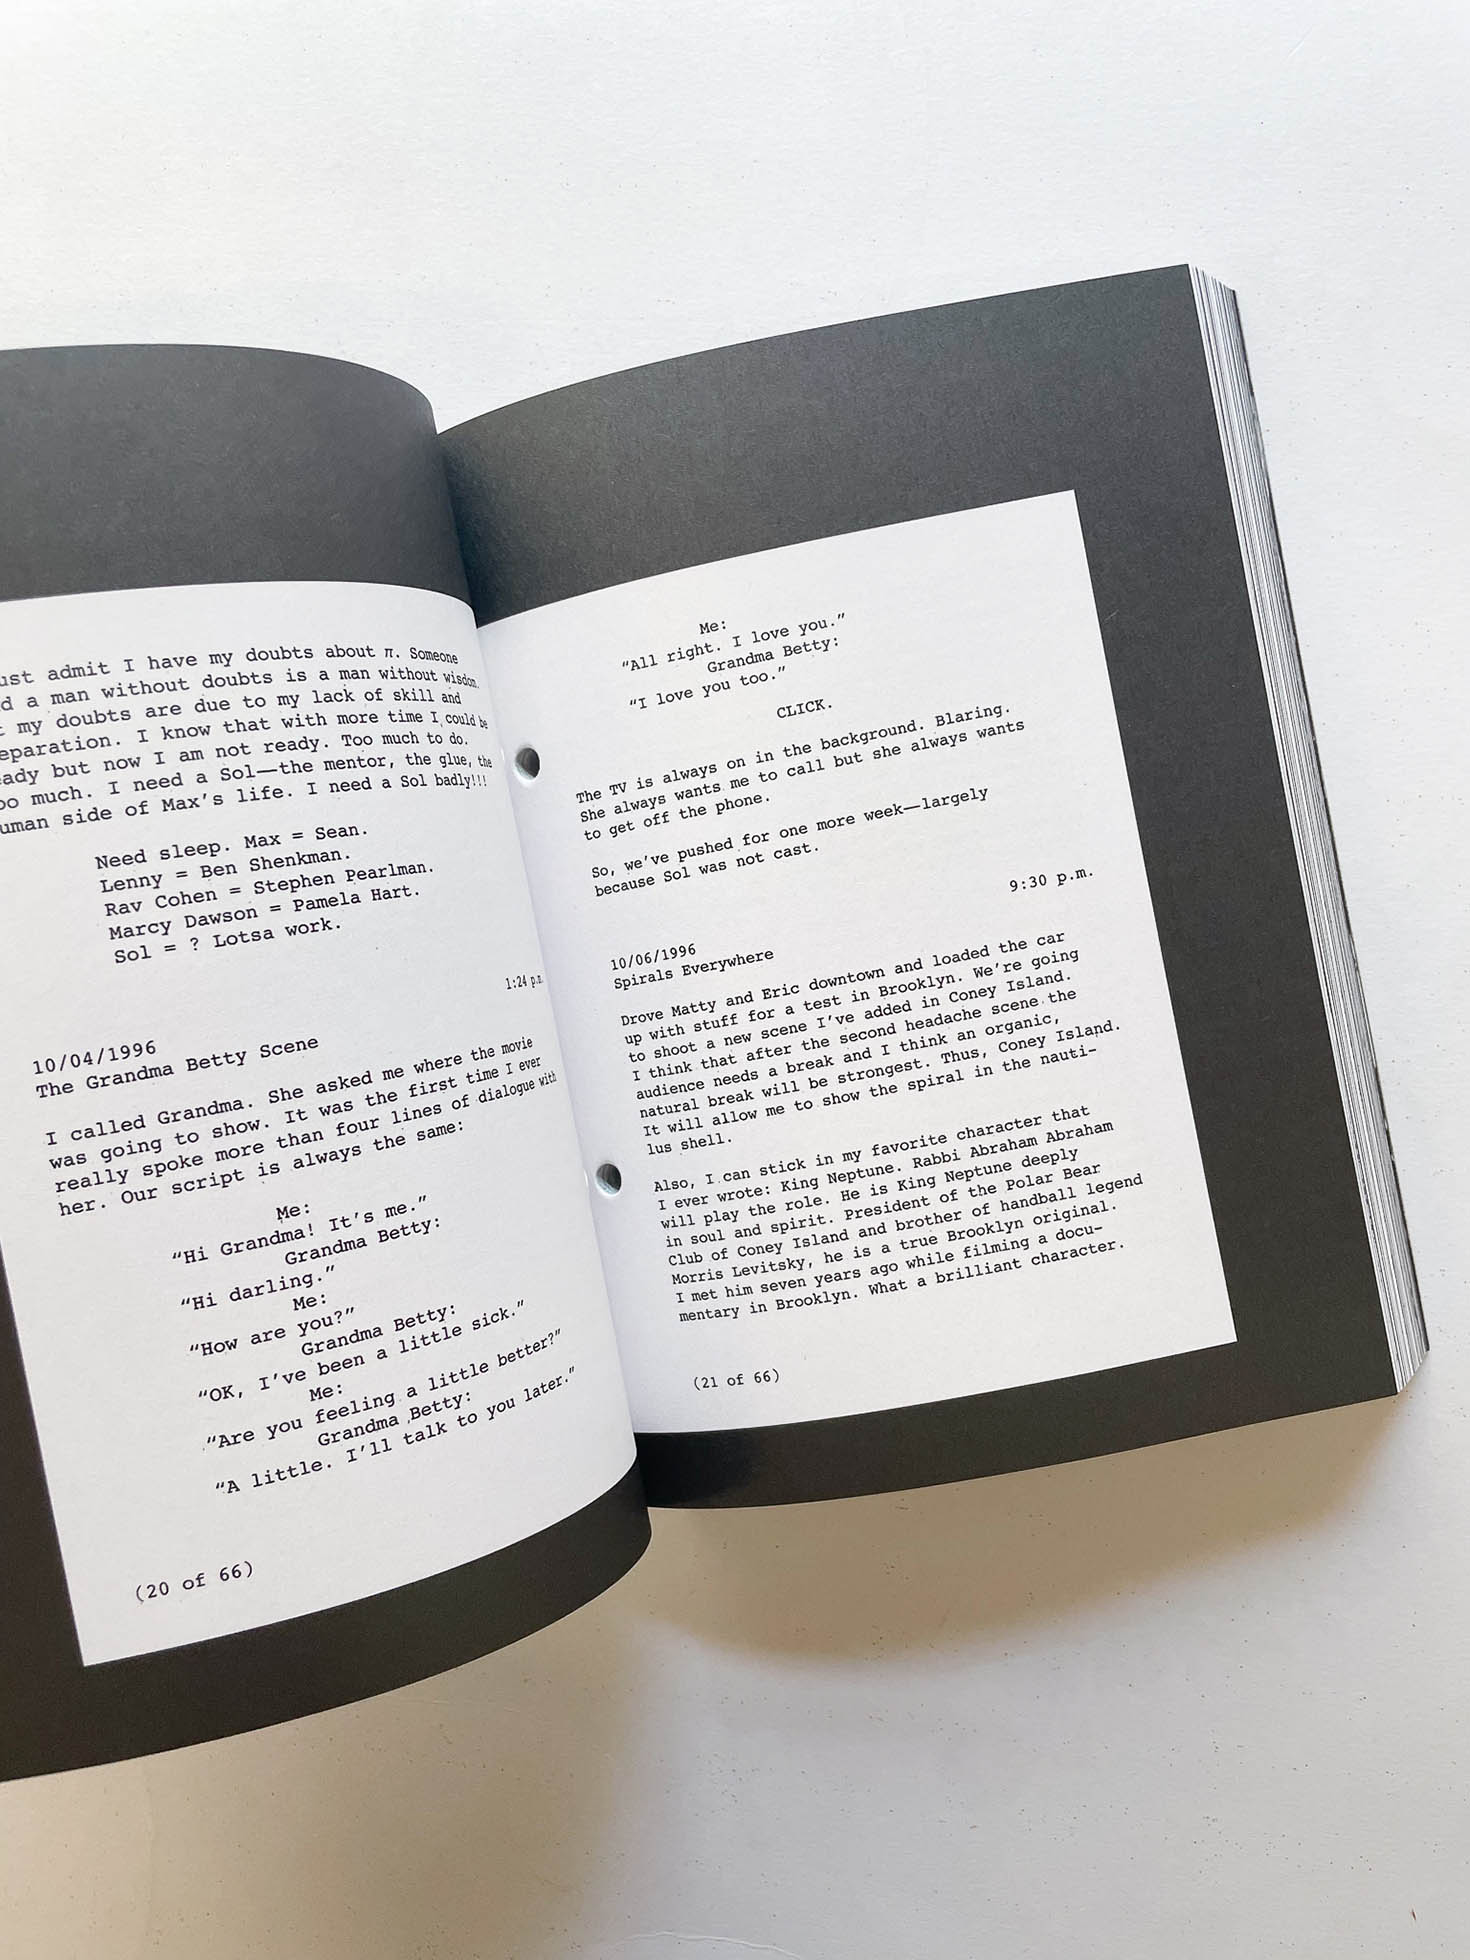 ust admit I have my doubts about π. Someone
d a man without doubts is a man without wisdom.
t my doubts are due to my lack of skill and
eparation. I know that with more time I could be
eady but now I am not ready. Too much to do.
oo much. I need a Sol—the mentor, the glue, the
uman side of Max's life. I need a Sol badly!!!
Need sleep. Max = Sean.
Lenny = Ben Shenkman.
Rav Cohen = Stephen Pearlman.
Marcy Dawson = Pamela Hart.
Sol = ? Lotsa work.
1:24 p.m.
10/04/1996
The Grandma Betty Scene
I called Grandma. She asked me where the movie
was going to show. It was the first time I ever
really spoke more than four lines of dialogue with
her. Our script is always the same:
Me:
"Hi Grandma! It's me."
Grandma Betty:
"Hi darling."
Me:
"How are you?"
Grandma Betty:
"OK, I've been a little sick."
Me:
"Are you feeling a little better?"
Grandma Betty:
"A little. I'll talk to you later."
(20 of 66)
Me:
"All right. I love you."
Grandma Betty:
"I love you too."
CLICK.
The TV is always on in the background. Blaring.
She always wants me to call but she always wants
to get off the phone.
So, we've pushed for one more week—largely
because Sol was not cast.
9:30 p.m.
10/06/1996
Spirals Everywhere
Drove Matty and Eric downtown and loaded the car
up with stuff for a test in Brooklyn. We're going
to shoot a new scene I've added in Coney Island.
I think that after the second headache scene the
audience needs a break and I think an organic,
natural break will be strongest. Thus, Coney Island.
It will allow me to show the spiral in the nauti-
lus shell.
Also, I can stick in my favorite character that
I ever wrote: King Neptune. Rabbi Abraham Abraham
will play the role. He is King Neptune deeply
in soul and spirit. President of the Polar Bear
Club of Coney Island and brother of handball legend
Morris Levitsky, he is a true Brooklyn original.
I met him seven years ago while filming a docu-
mentary in Brooklyn. What a brilliant character.
(21 of 66)